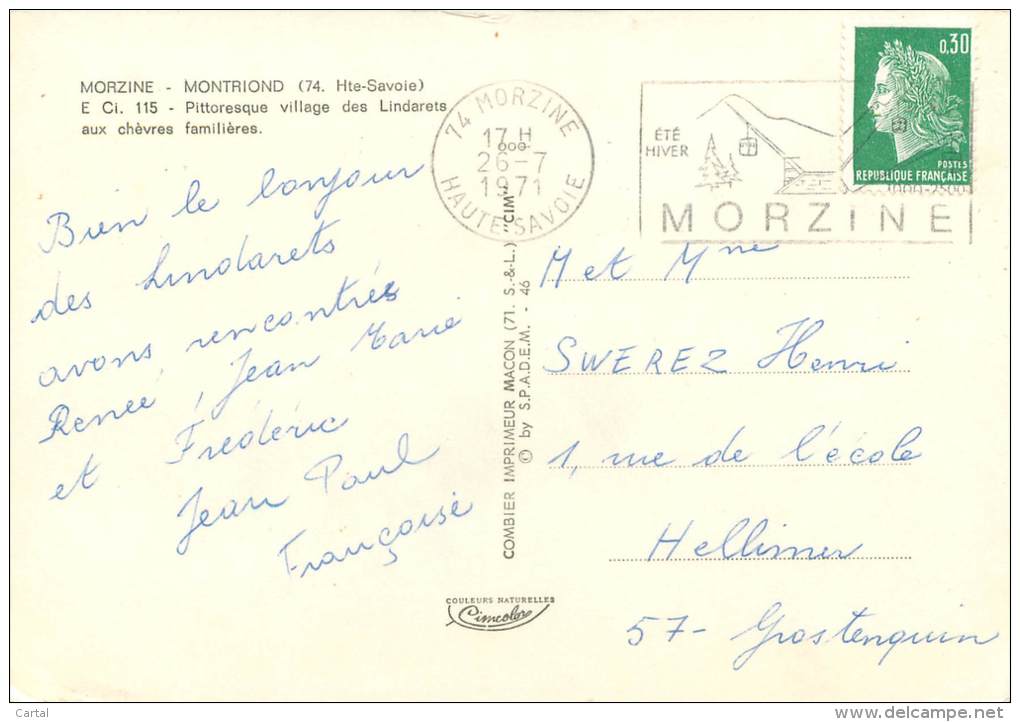 MORZINE - MONTRIOND (74. Hte-Savoie)
E Ci. 115 - Pittoresque village des Lindarets
aux chèvres familières.
Bien le bonjour
des Lindarets
avons rencontrés
Renée, Jean Marie
et Frédéric
Jean Paul
Françoise
74 MORZINE
17 H
26-7
1971
HAUTE-SAVOIE
ÉTÉ
HIVER
1000-2500
MORZINE
0,30
POSTES
REPUBLIQUE FRANÇAISE
COMBIER IMPRIMEUR MACON (71. S.-&-L.) "CIM"
© by S.P.A.D.E.M. - 46
M et Mme
SWEREZ Henri
1, rue de l'école
Hellimer
57- Grostenquin
COULEURS NATURELLES
Cimcolor
Cartal
www.delcampe.net